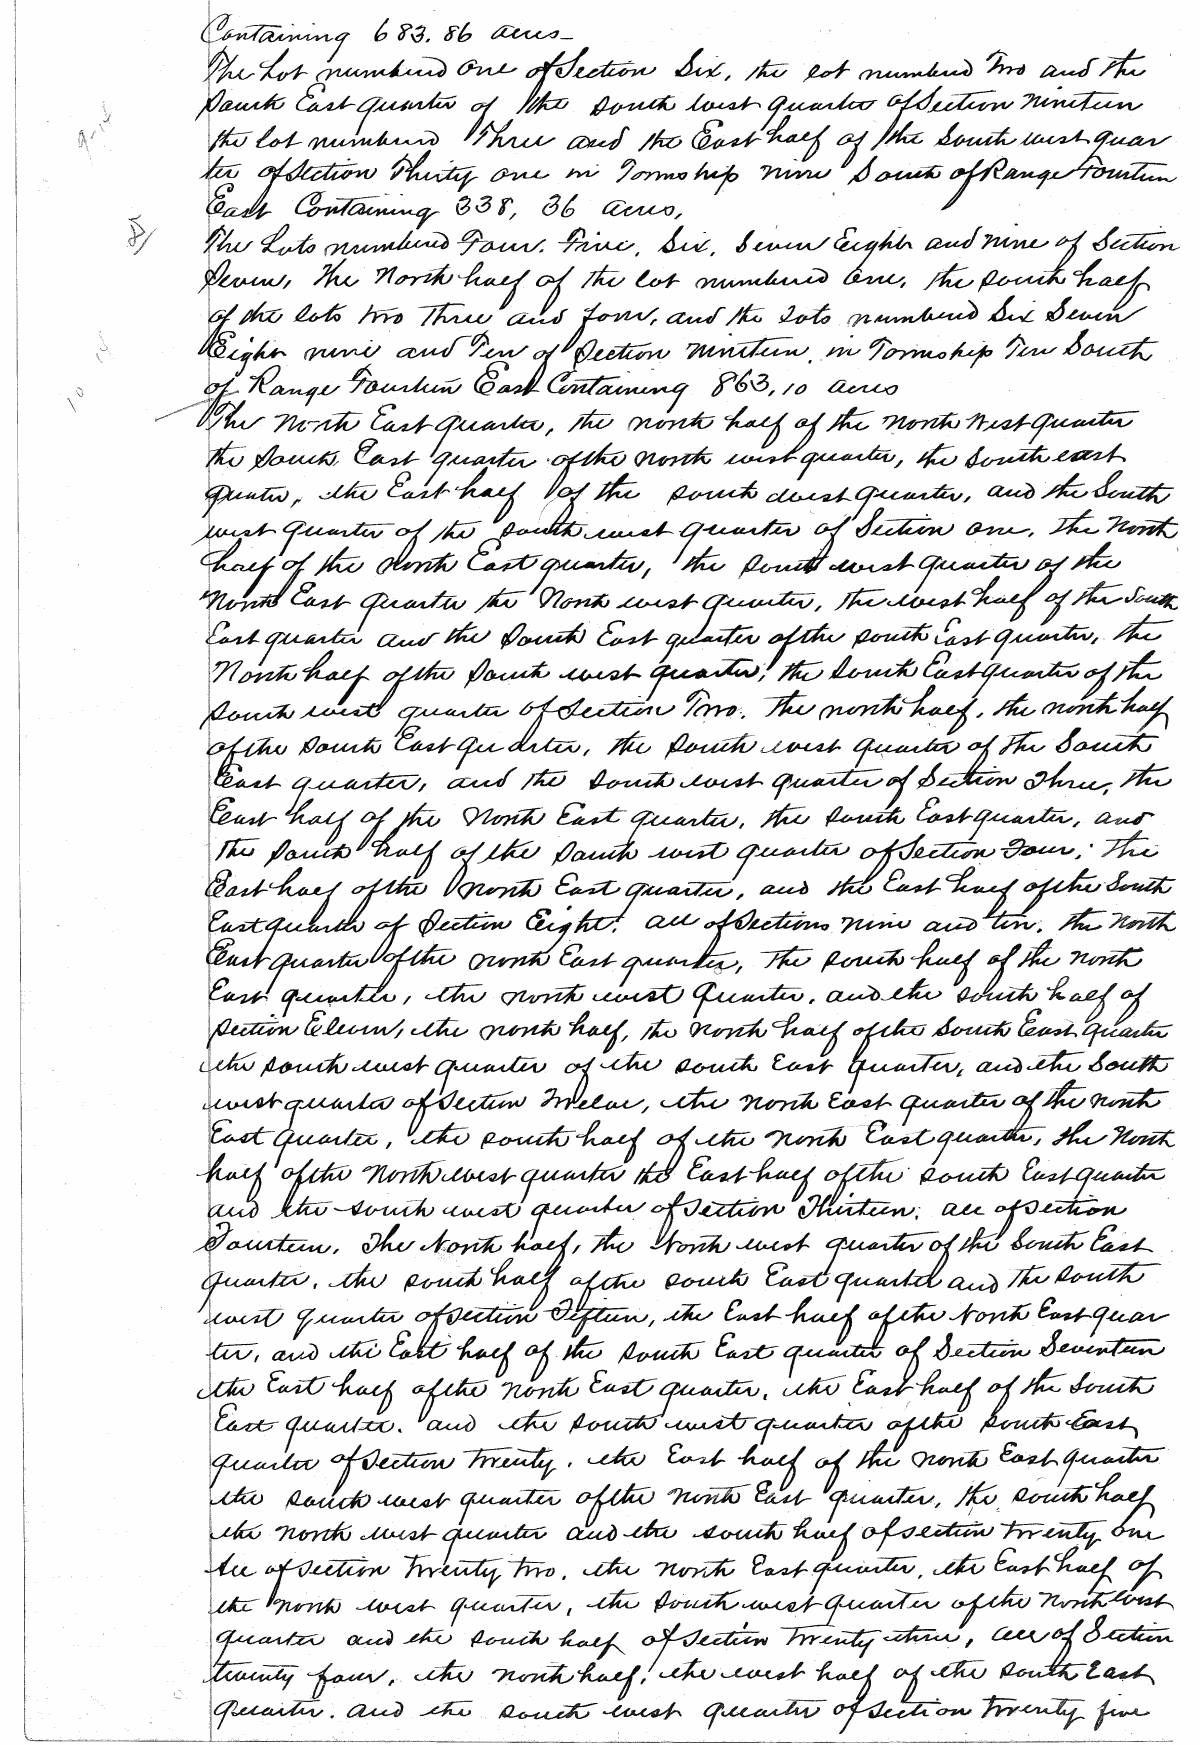 Containing 683.86 acres—
The Lot numbered One of Section Six, the lot numbered Two and the
South East quarter of the South west quarter of Section nineteen
the lot numbered Three and the East half of the South west quar
ter of Section Thirty one in Township nine South of Range Fourteen
East Containing 338,36 acres,
The Lots numbered Four. Five, Six, Seven Eight and nine of Section
Seven, the North half of the lot numbered One, the south half
of the lots two three and four, and the lots numbered Six Seven
Eight nine and Ten of Section nineteen, in Township Ten South
of Range Fourteen East Containing 863,10 acres
The North East quarter, the north half of the North West quarter
the South East quarter of the north west quarter, the South east
quarter, the East half of the south west quarter, and the South
west quarter of the south west quarter of Section one, the North
half of the north East quarter, the south west quarter of the
North East quarter the North west quarter, the west half of the South
East quarter and the South East quarter of the south East quarter, the
North half of the South west quarter, the South East quarter of the
South west quarter of Section Two. the north half, the north half
of the South East quarter, the South west quarter of the South
East quarter, and the south west quarter of Section Three, the
East half of the North East quarter, the south East quarter, and
the South half of the South west quarter of Section Four; the
East half of the north East quarter, and the East half of the South
East quarter of Section Eight; all of Sections nine and ten, the North
East quarter of the north East quarter, the south half of the north
East quarter, the north west Quarter, and the south half of
Section Eleven, the north half, the north half of the South East quarter
the south west quarter of the south East quarter, and the South
west quarter of Section Twelve, the north East quarter of the north
East quarter, the south half of the north East quarter, the North
half of the North west quarter the East half of the south East quarter
and the south west quarter of Section Thirteen; all of section
Fourteen, The North half, the North west quarter of the South East
quarter, the south half of the south East quarter and the south
west quarter of section Fifteen, the East half of the North East quar
ter, and the East half of the south East quarter of Section Seventeen
the East half of the north East quarter, the East half of the South
East quarter. and the south west quarter of the south East
quarter of Section twenty, the East half of the north East quarter
the south west quarter of the north East quarter, the south half
the north west quarter and the south half of section twenty one
All of Section twenty two, the north East quarter, the East half of
the north west quarter, the south west quarter of the North West
quarter and the south half of Section twenty three, all of Section
twenty four, the north half, the west half of the south East
quarter. and the south west quarter of Section twenty five